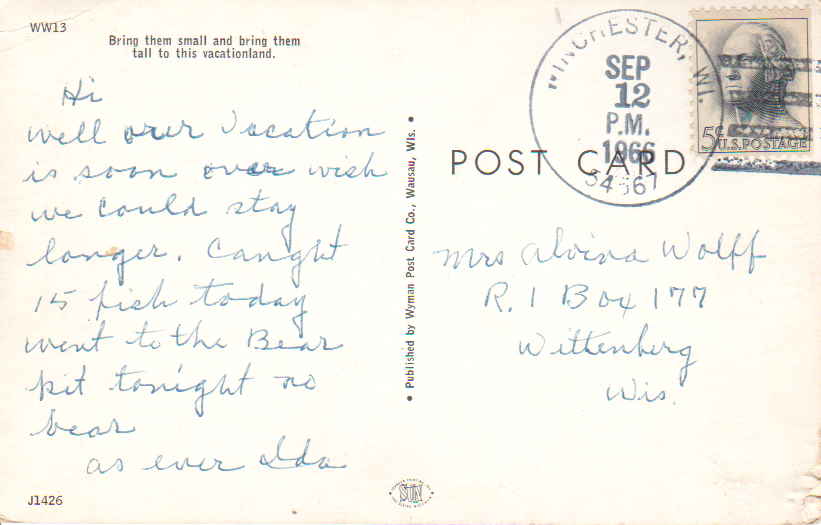 WW13
Bring them small and bring them
tall to this vacationland.
Hi
well our Vacation
is soon over wish
we could stay
longer. Caught
15 fish today
went to the Bear
pit tonight no
bear
as ever Ida
J1426
• Published by Wyman Post Card Co., Wausau, Wis. •
WINCHESTER, WI.
SEP
12
P.M.
1966
5¢ U.S. POSTAGE
POST CARD
Mrs Alvina Wolff
R. 1 Box 177
Wittenberg
Wis.